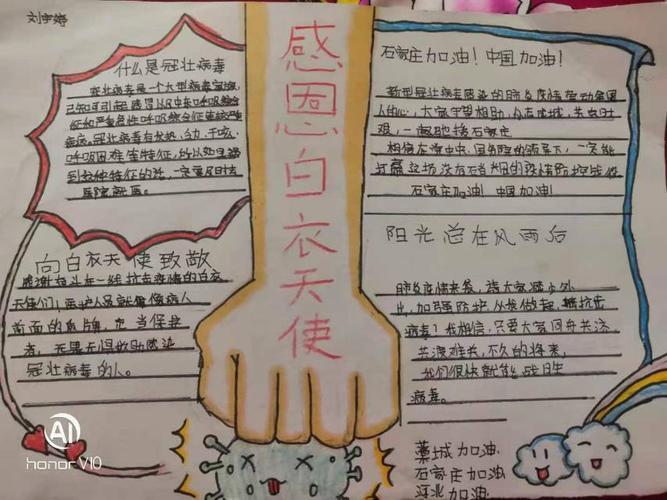 刘宇婷
感恩白衣天使
什么是冠壮病毒
冠壮病毒是一个大型病毒家族,
已知可引起感冒以及中东呼吸综合
征和严重急性呼吸综合征等较严重
疾病。冠壮病毒有发热、乏力、干咳、
呼吸困难等特征,所以如果遇
到这种特征的话,一定要及时去
医院就医。
向白衣天使致敬
感谢奋斗在一线抗击疫情的白衣
天使们,医护人员就像病人
前面的盾牌,
者,无畏无惧救助感染
冠壮病毒的人。
石家庄加油!中国加油!
新型冠壮病毒感染的肺炎疫情牵动全国
人的心,大家守望相助、众志成城,共克时
艰,一起驰援石家庄
相信在党中央、国务院的领导下,一定能
打赢这场没有硝烟的疫情防控战役
石家庄加油!中国加油!
阳光总在风雨后
肺炎疫情来袭,请大家减少外
出,加强防护,从我做起,抵抗
病毒!我相信,只要大家同舟共济,
共渡难关,不久的将来,
我们很快就能战胜
病毒。
藁城加油
石家庄加油
河北加油
AI
honor V10